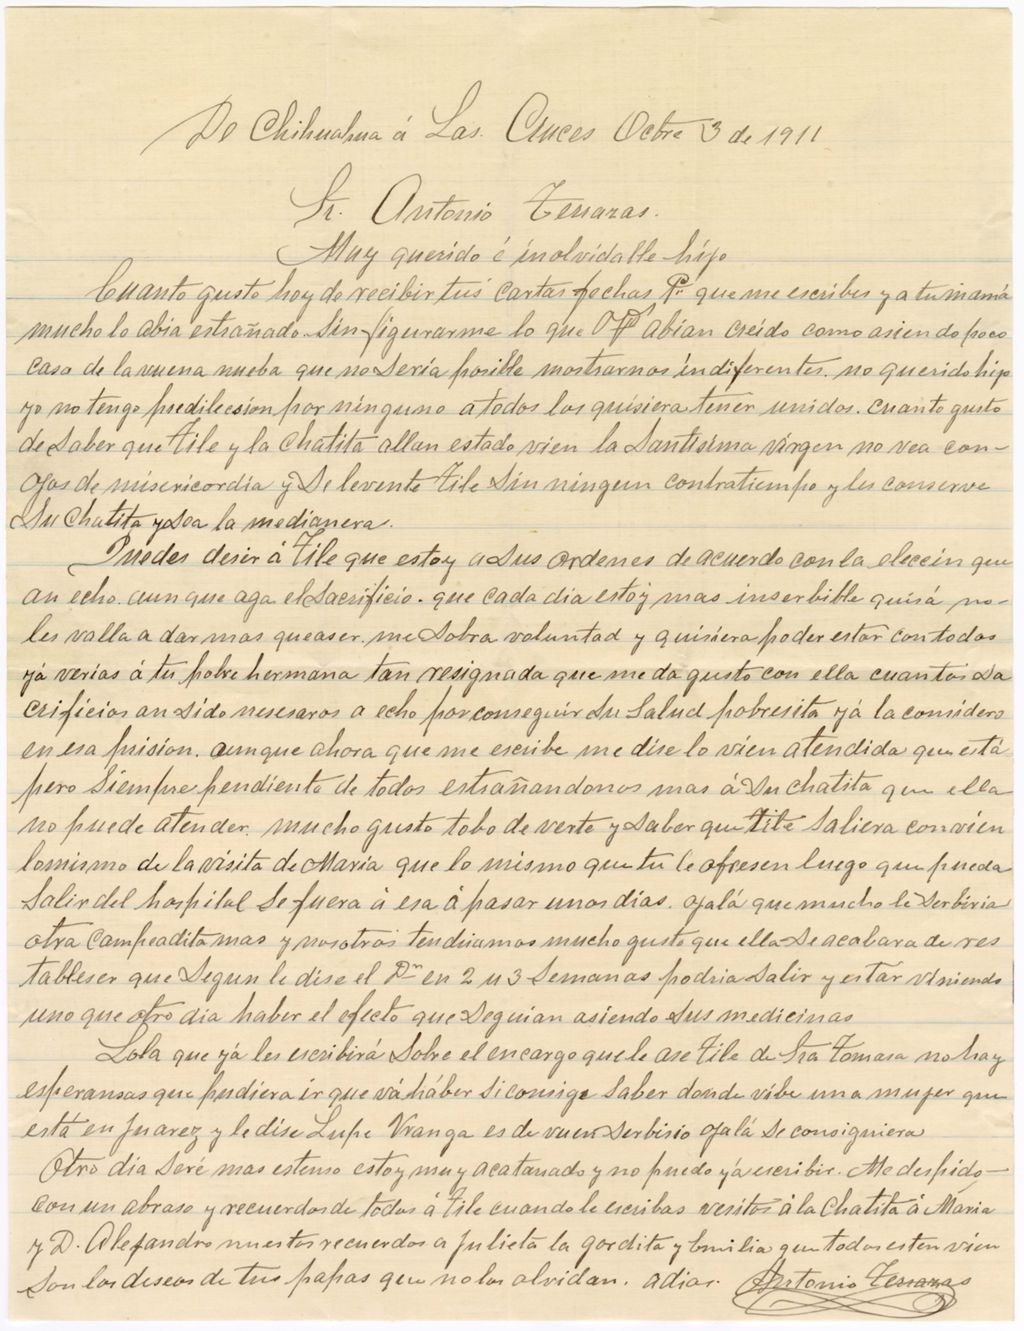 De Chihuahua á Las. Cruces Octre 3 de 1911
Sr. Antonio Terrazas.
Muy querido é inolvidalle hijo
Cuanto gusto hoy de recibir tus cartas fechas que me escribes y a tu mamá
mucho lo abia estrañado. Sin figurarme lo que abían creido como asiendo poco
caso de la vuena nueba que no Sería posible mostrarnos indiferentes. no querido hijo
yo no tengo predilecsion por ninguno a todos los quisiera tener unidos. cuanto gusto
de Saber que Tile y la Chatita allan estado vien la Santisima virgen no vea con-
ojos de misericordia y Se levente Tile Sin ningun contratiempo y les conserve
Su Chatita y Sea la medianera.
Puedes desir á Tile que estoy a Sus ordenes de acuerdo con la eleccin que
an echo. aun que aga el Sacrificio. que cada dia estoy mas inserbible quisá no-
les valla a dar mas queaser. me Sobra voluntad y quisiera poder estar con todos
yá verias á tu pobre hermana tan resignada que me da gusto con ella cuantos Sa
crificios an Sido nesesaros a echo por conseguir Su Salud pobresita yá la considero
en esa prision. aunque ahora que me escribe me dise lo vien atendida que está
pero Siempre pendiente de todos estrañandonos mas á Su chatita que ella
no puede atender. mucho gusto tobo de verte y Saber que Tile Saliera con vien
lo mismo de la visita de Maria que lo mismo que tu le ofresen luego que pueda
Salir del hospital Se fuera á esa á pasar unos días. ojalá que mucho le Serbiria
otra Campeadita mas y nosotros tendriamos mucho gusto que ella Se acabara de res
tableser que Segun le dise el Dr en 2 u 3 Semanas podria Salir y estar viniendo
uno que otro dia haber el efecto que Seguian asiendo Sus medicinas
Lola que yá les escribirá Sobre el encargo que le ase Tile de Sra Tomasa no hay
esperansas que pudiera ir que vá háber Si consige Saber donde vibe una mujer que
está en Juarez y le dise Lupe Vranga es de vuen Serbisio ojalá Se consiguiera
Otro dia Seré mas estenso estoy muy acatarrado y no puedo yá escribir. Me despido-
con un abraso y recuerdos de todos á Tile cuando le escribas vesitos á la Chatita á Maria
y D. Alejandro nuestros recuerdos a Julieta la gordita y Emilia que todos esten vien
Son los deseos de tus papas que no los olvidan. adios. Antonio Terrazas